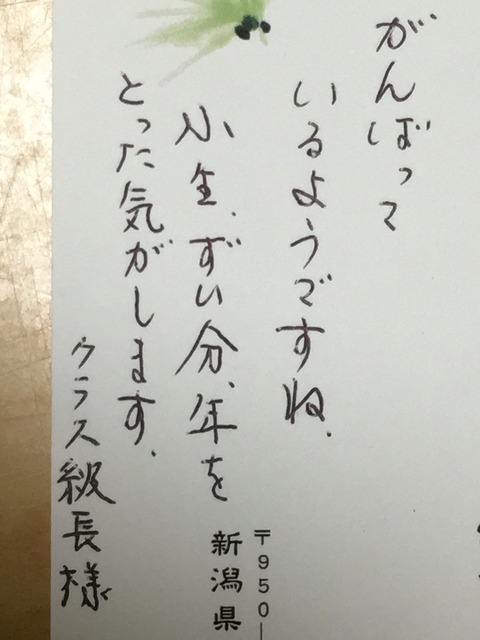 がんばって
いるようですね.
小生、ずい分、年を
とった気がします.
クラス級長様
〒950-
新潟県